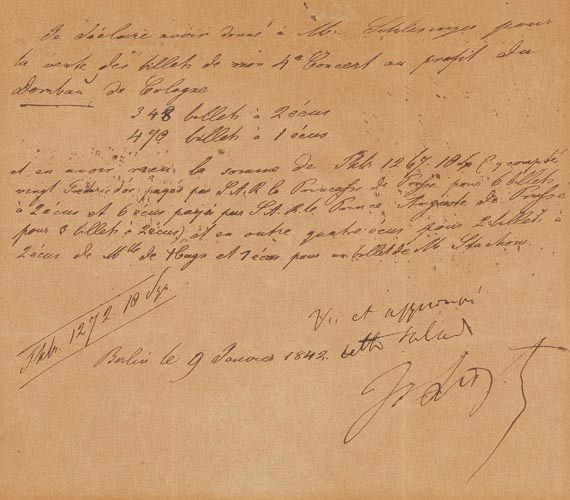 Je déclare avoir donné à Mr. Schlesinger pour
la vente des billets de mon 4e Concert au profit du
Dombau de Cologne
348 billets à 2 écus
478 billets à 1 écus
et en avoir reçu la somme de Thlr. 1267. 18 Sg (y compté
vingt Frédéricdor, payés par S.A.R. la Princesse de Prusse pour 6 billets
à 2 écus et 6 écus payé par S.A.R. le Prince Auguste de Prusse
pour 3 billets à 2 écus) et en outre quatre écus pour 2 billet à
2 écus de Mlle de et 1 écu pour un billet de Mr
Thlr. 1272. 18 Sgr.
Vu et approuvé
Berlin le 9 Janvier 1842.